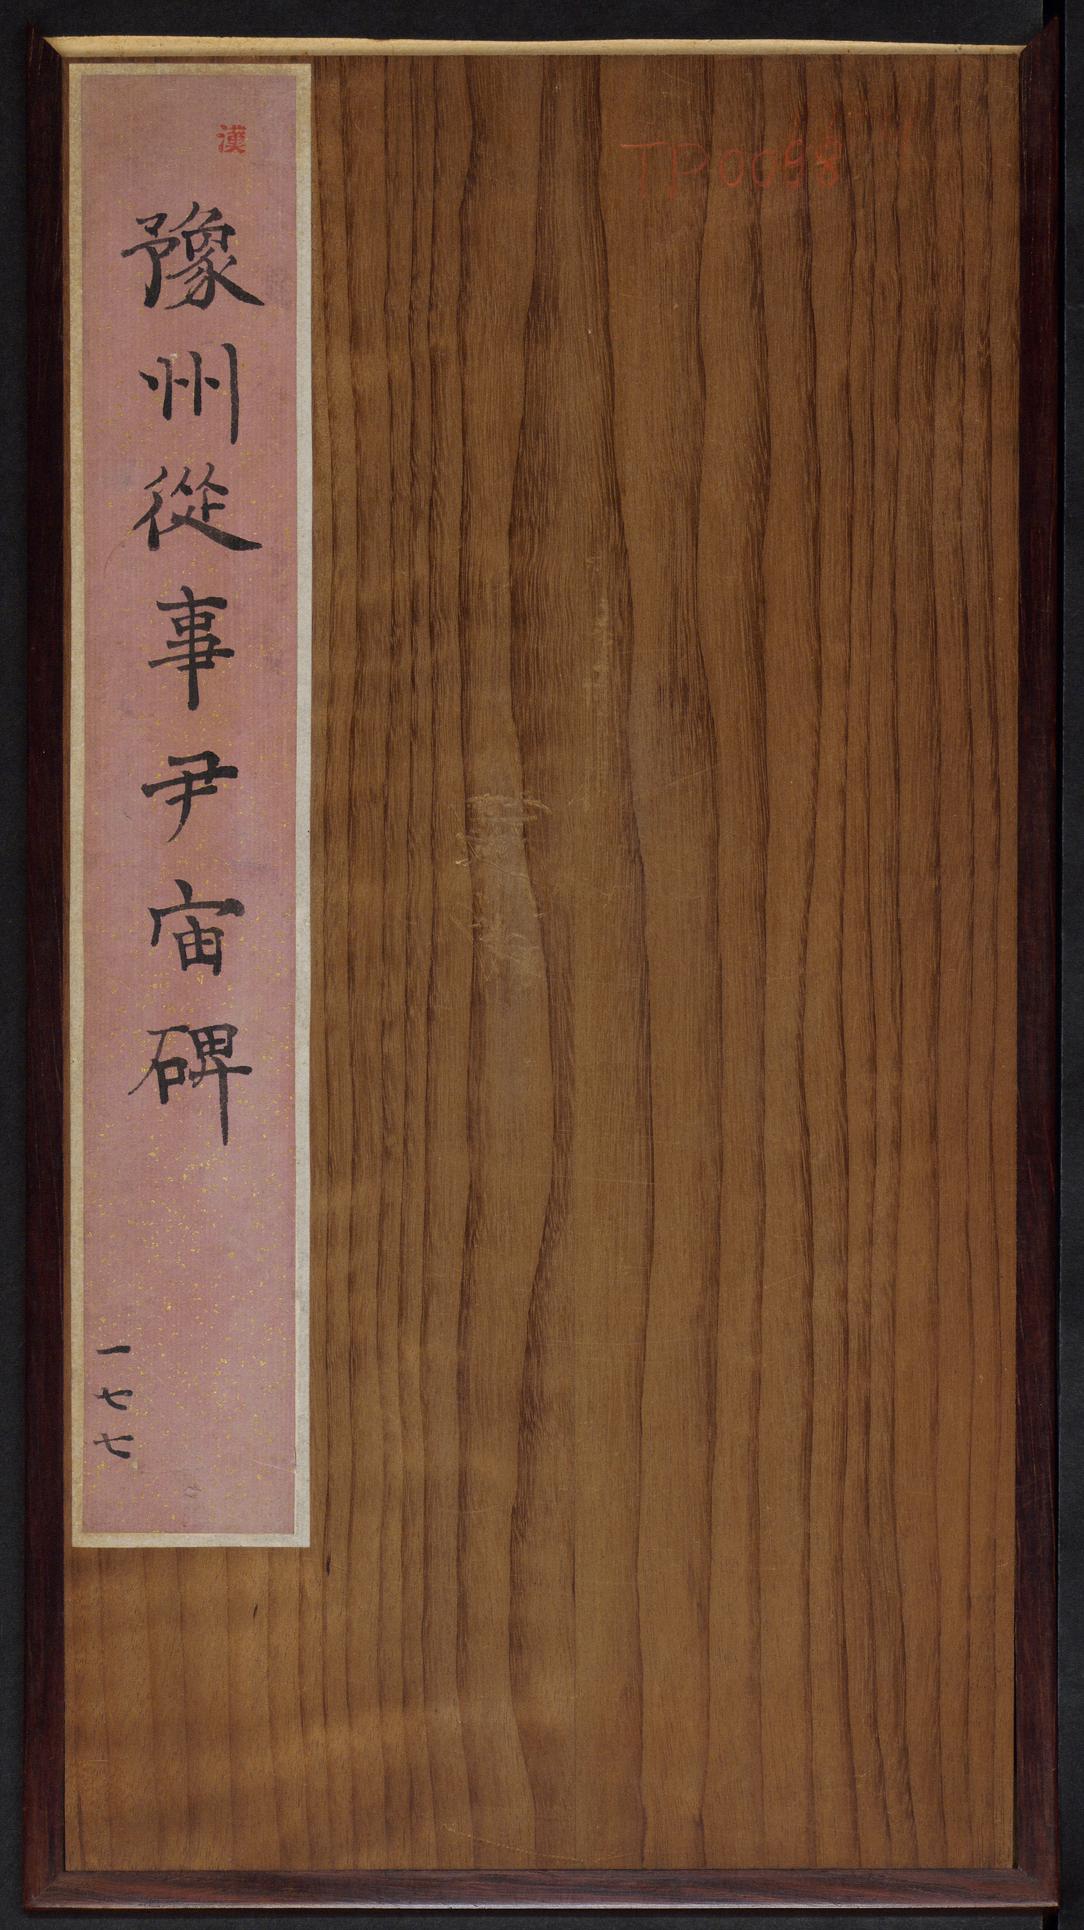 漢
豫州從事尹宙碑
一七七
TP0098